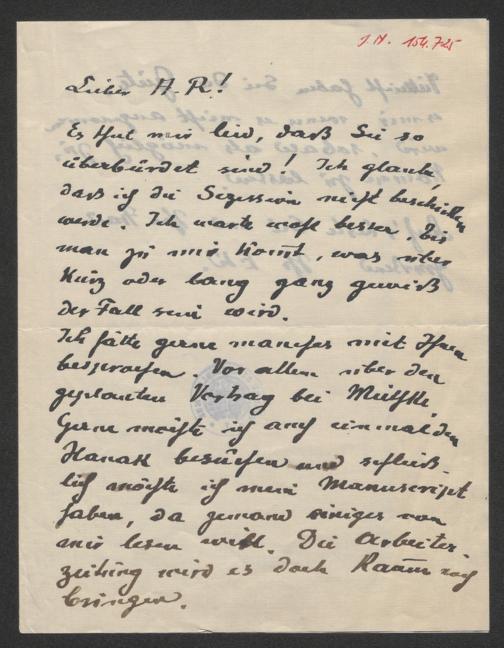 J.N. 154.725
Lieber A. R!
Es thut mir leid, daß Sie so
überbürdet sind! Ich glaube,
daß ich die Sezession nicht beschicken
werde. Ich warte wohl besser bis
man zu mir kommt, was über
kurz oder lang ganz gewiß
der Fall sein wird.
Ich hätte gerne manches mit Ihnen
besprochen. Vor allem über den
geplanten Vortrag bei
Gerne möchte ich auch einmal den
Hanak besuchen und schließ-
lich möchte ich mein Manuscript
haben, da jemand einiges von
mir lesen will. Die Arbeiter-
zeitung wird es doch kaum noch
bringen.